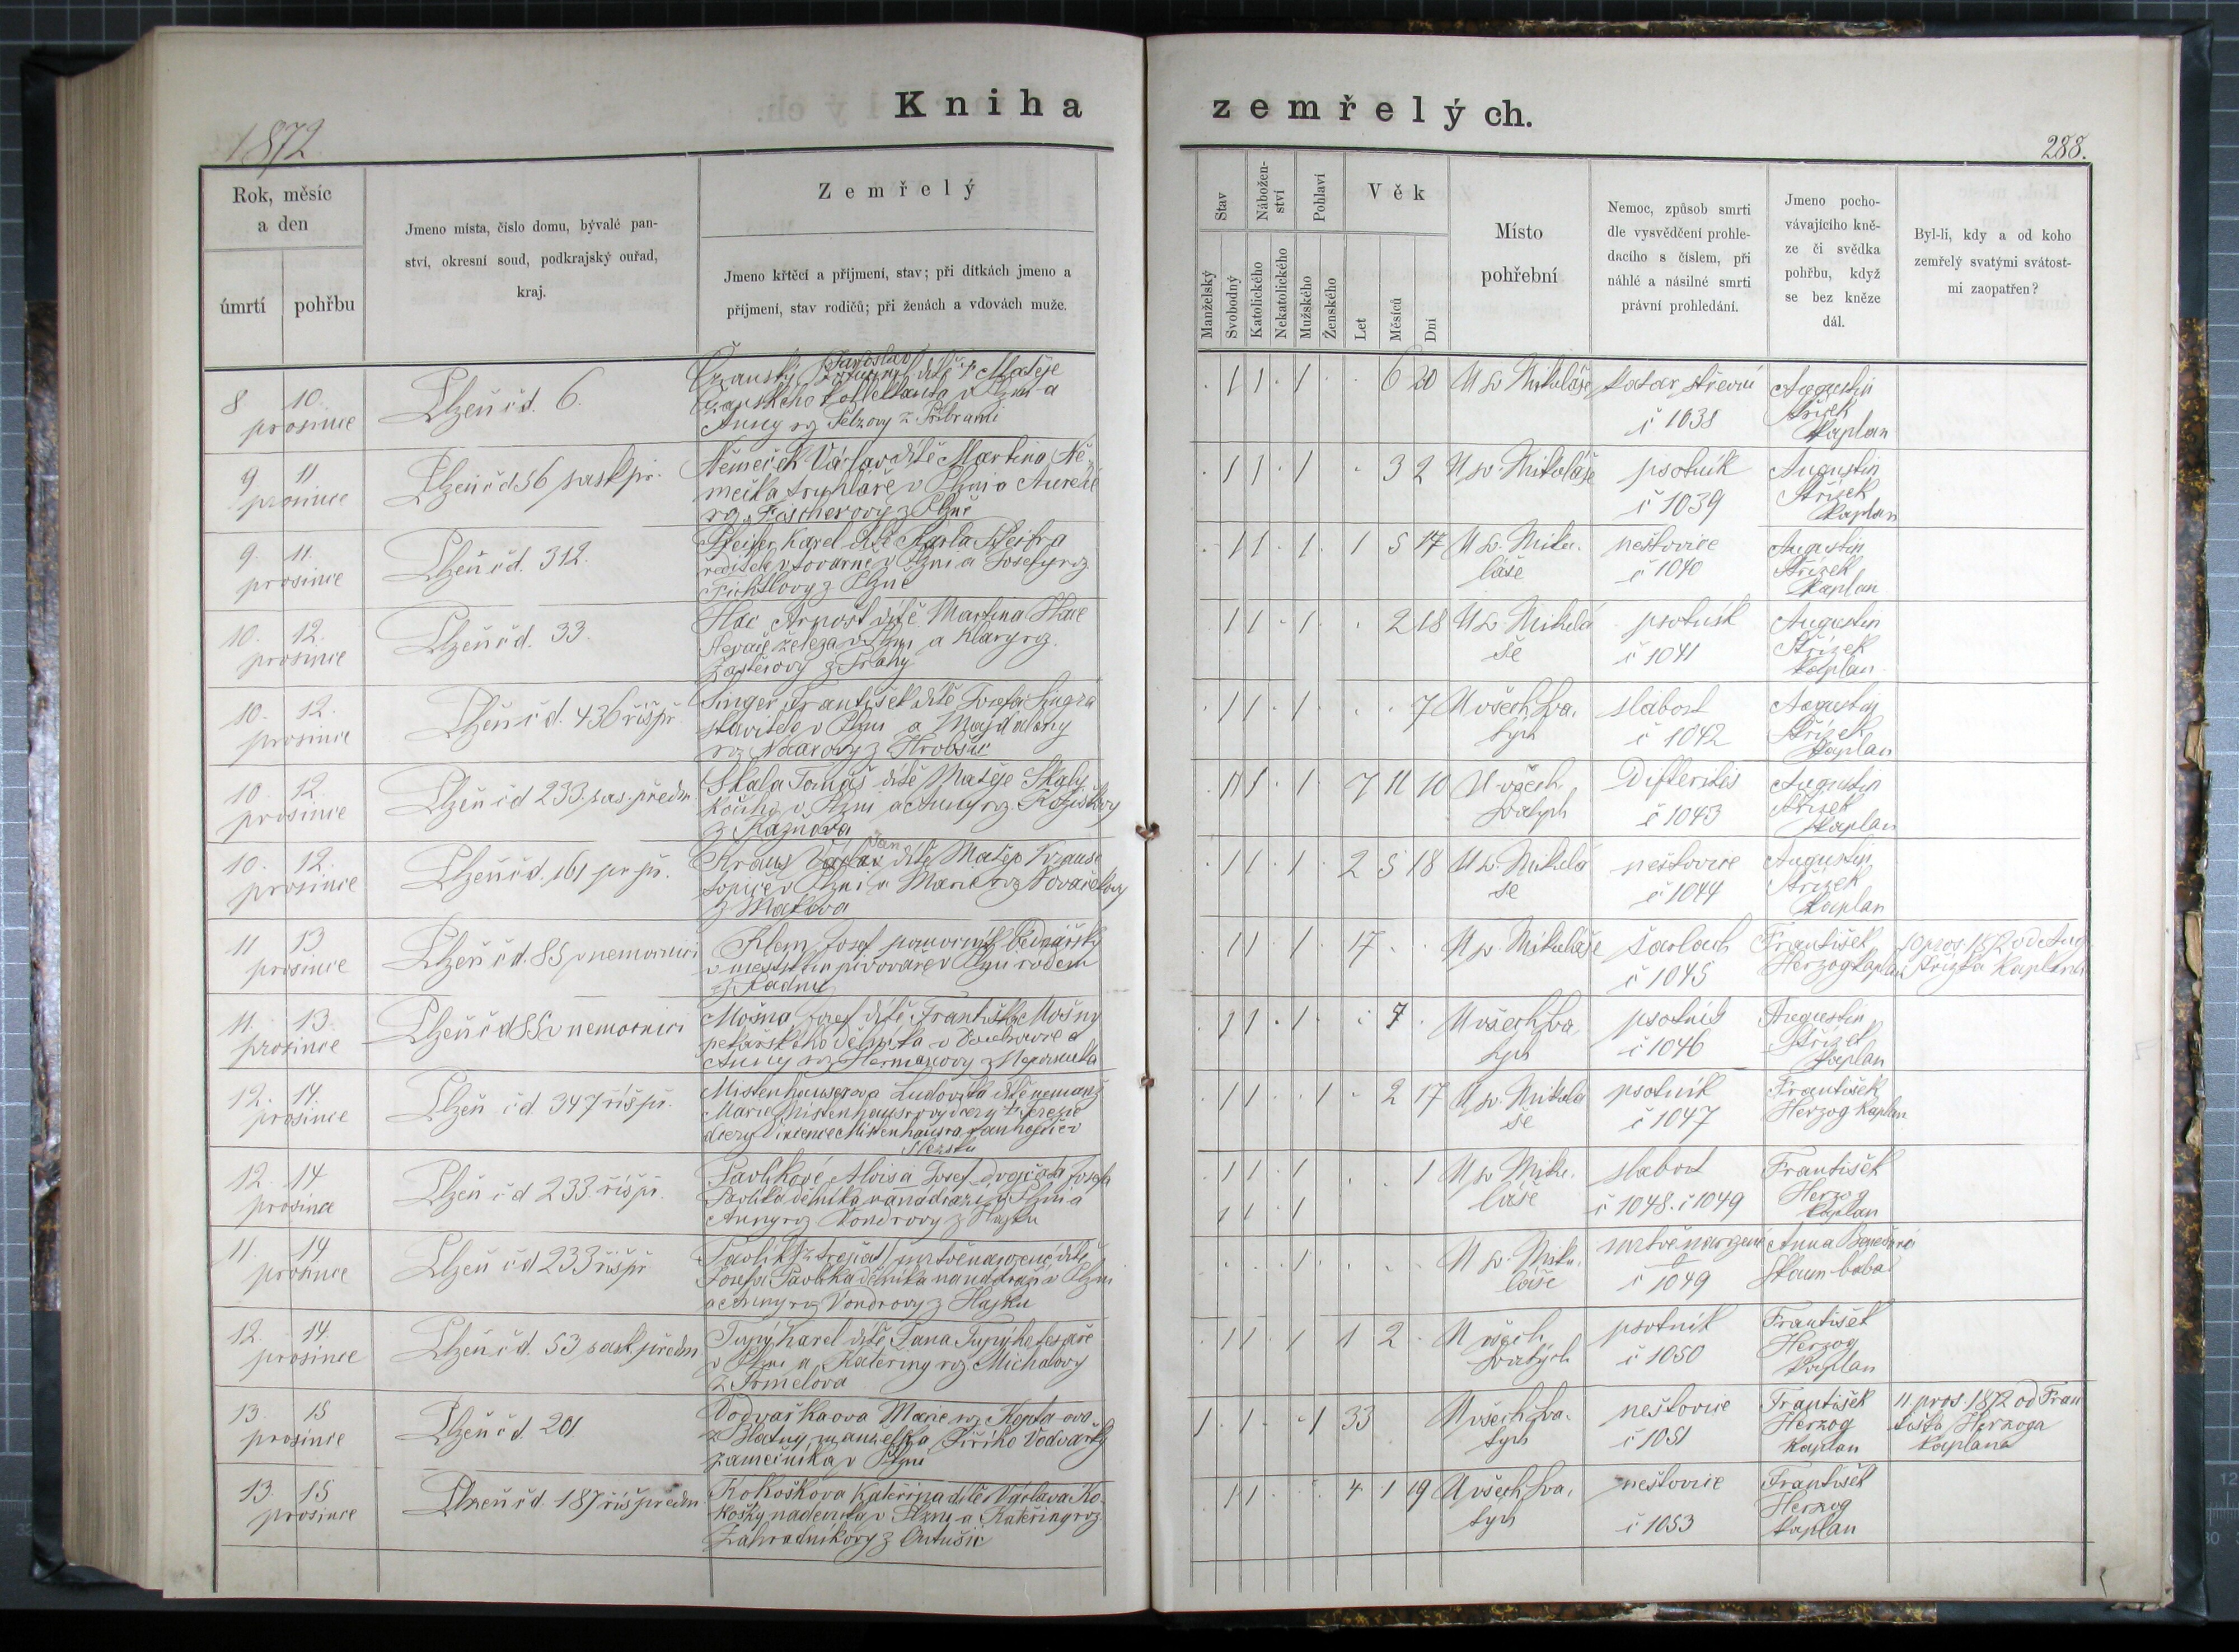 1872
Kniha zemřelých.
288.
Rok, měsíc
a den
úmrtí
pohřbu
Jmeno místa, číslo domu, bývalé pan-
ství, okresní soud, podkrajský ouřad,
kraj.
Zemřelý
Jmeno křtěcí a příjmení, stav; při dítkách jmeno a
příjmení, stav rodičů; při ženách a vdovách muže.
Stav
Nábožen-
ství
Pohlaví
Věk
Manželský
Svobodný
Katolického
Nekatolického
Mužského
Ženského
Let
Měsíců
Dní
Místo
pohřební
Nemoc, způsob smrti
dle vysvědčení prohle-
dacího s číslem, při
náhlé a násilné smrti
právní prohledání.
Jmeno pocho-
vávajícího kně-
ze či svědka
pohřbu, když
se bez kněze
dál.
Byl-li, kdy a od koho
zemřelý svatými svátost-
mi zaopatřen?
8 10.
prosince
Plzeň čd. 6.
Jaroslav
dítě Matěje
v Plzni a
Anny roz Pelzovy z Příbrami
6 20
U sv Mikuláše
katar střevní
č 1038
Augustin
Střízek
Kaplan
9 11
prosince
Plzeň čd 56 pražk př.
Němeček Václav dítě Martina Ně-
mečka truhláře v Plzni a Aurelie
roz Fischerovy z Plzně
3 2
U sv Mikuláše
psotník
č 1039
Augustin
Střízek
Kaplan
9. 11.
prosince
Plzeň čd. 312.
Karel dítě Karla
ředitele v továrně v Plzni a Josefy roz
Fichtlovy z Plzně
1 5 17
U sv. Miku-
láše
neštovice
č 1040
Augustin
Střízek
Kaplan
10. 12.
prosince
Plzeň čd. 33.
Hac Arnošt dítě Martina Hace
železa v Plzni a Klary roz.
z Prahy
2 18
U sv. Mikulá
še
psotník
č 1041
Augustin
Střízek
Kaplan
10. 12.
prosince
Plzeň čd. 436 říš př
Singer František dítě Josefa Singra
stavitele v Plzni a Majdaleny
roz z Hrobšic
7
U všech sva-
tých
slabost
č 1042
Augustin
Střízek
Kaplan
10. 12.
prosince
Plzeň čd 233. sas. předm
Skala Tomáš dítě Matěje Skaly
v Plzni a Anny roz.
z Kaznova
7 11 10
U všech
svatých
Difteritis
č 1043
Augustin
Střízek
Kaplan
10. 12.
prosince
Plzeň čd. 161 pr. př.
Jan
Kraus Václav dítě Matěje Krause
topiče v Plzni a Marie roz Kovaříkovy
z Makova
2 5 18
U sv. Mikulá
še
neštovice
č 1044
Augustin
Střízek
Kaplan
11 13
prosince
Plzeň čd. 85 v nemocnici
Klem Josef pomocník bednářský
v městském pivovaře v Plzni rodem
z Radnic
17
U sv. Mikuláše
šarlach
č 1045
František
Herzog Kaplan
10 pros. 1872 od Aug
Střízka Kaplana
11. 13.
prosince
Plzeň čd 85 v nemocnici
Mošna Josef dítě Františka Mošny
pekařského dělníka v Doubravce a
Anny roz Hermanovy z Nepomuka
7
U všech sva
tých
psotník
č 1046
Augustin
Střízek
Kaplan
12. 14.
prosince
Plzeň čd 347 říš př.
Mistenhauserova Ludovika dítě nemanž
Marie Mistenhausrovy dcery Terezie
dcery Vincence Mistenhausra
Slezsku
2 17
U sv. Mikulá
še
psotník
č 1047
František
Herzog Kaplan
12. 14
prosince
Plzeň čd 233. říš př.
Pavlikové Aloisa Josef dvojčata Josefa
Pavlika dělníka na nádraží v Plzni a
Anny roz Vondrovy z Hajku
1
U sv Miku-
láše
slabost
č 1048. č 1049
František
Herzog
Kaplan
11. 14
prosince
Plzeň čd 233 říš př
Pavlik (z trojčat) mrtvě narozené dítě
Josefa Pavlika dělníka na nádraží v Plzni
a Anny roz Vondrovy z Hajku
U sv. Miku-
láše
mrtvě narozené
č 1049
Anna
baba
12. 14.
prosince
Plzeň čd. 53 sask předm
Tupý Karel dítě Jana Tupýho tesaře
v Plzni a Kateriny roz. Michalovy
z Trmelova
1 2
U všech
svatých
psotník
č 1050
František
Herzog
Kaplan
13. 15
prosince
Plzeň čd. 201
Vodvaškaova Marie roz
z Blatny manželka Jiřiho Vodvašky
zamečníka v Plzni
33
U všech sva-
tých
neštovice
č 1051
František
Herzog
Kaplan
11. pros. 1872 od Fran
tiška Herzoga
Kaplana
13. 15
prosince
Plzeň čd. 187 říš předm
Kokoškova Kateřina dítě Václava Ko-
košky nadeníka v Plzni a Kateřiny roz
Zahradnikovy z Ontušic
4 1 19
U všech sva-
tých
neštovice
č 1053
František
Herzog
Kaplan